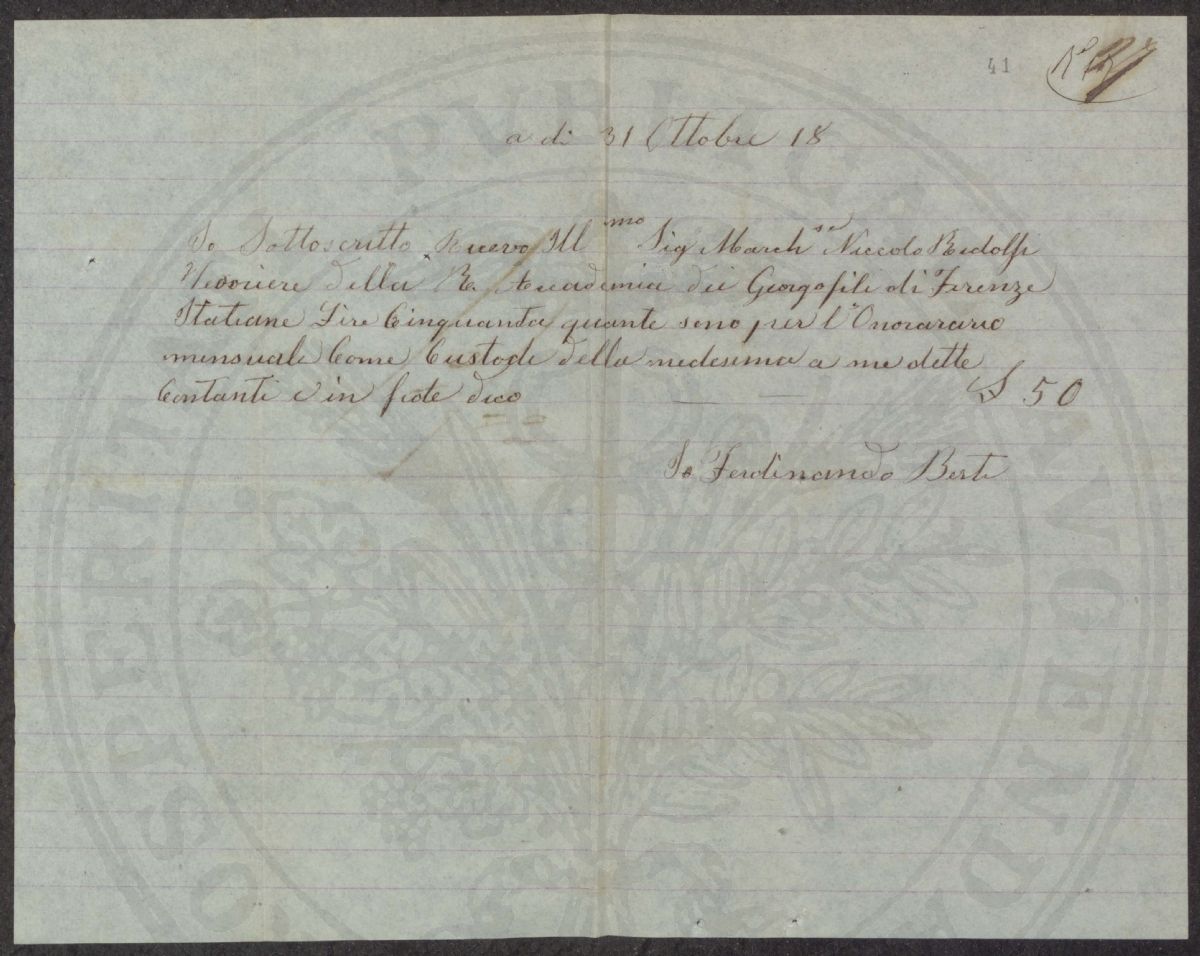 41
a di 31 Ottobre 18
Io Sottoscritto Ricevo Ill mo Sig March se Niccolo Ridolfi
Tesoriere della R. Accademia dei Georgofili di Firenze
Italiane Lire Cinquanta quante sono per l'Onorarario
mensuale Come Custode della medesima a me dette
Contanti e in fede dico £ 50
Io Ferdinando Berti
PVBLICA
PROSPERITATI AVGENDAE